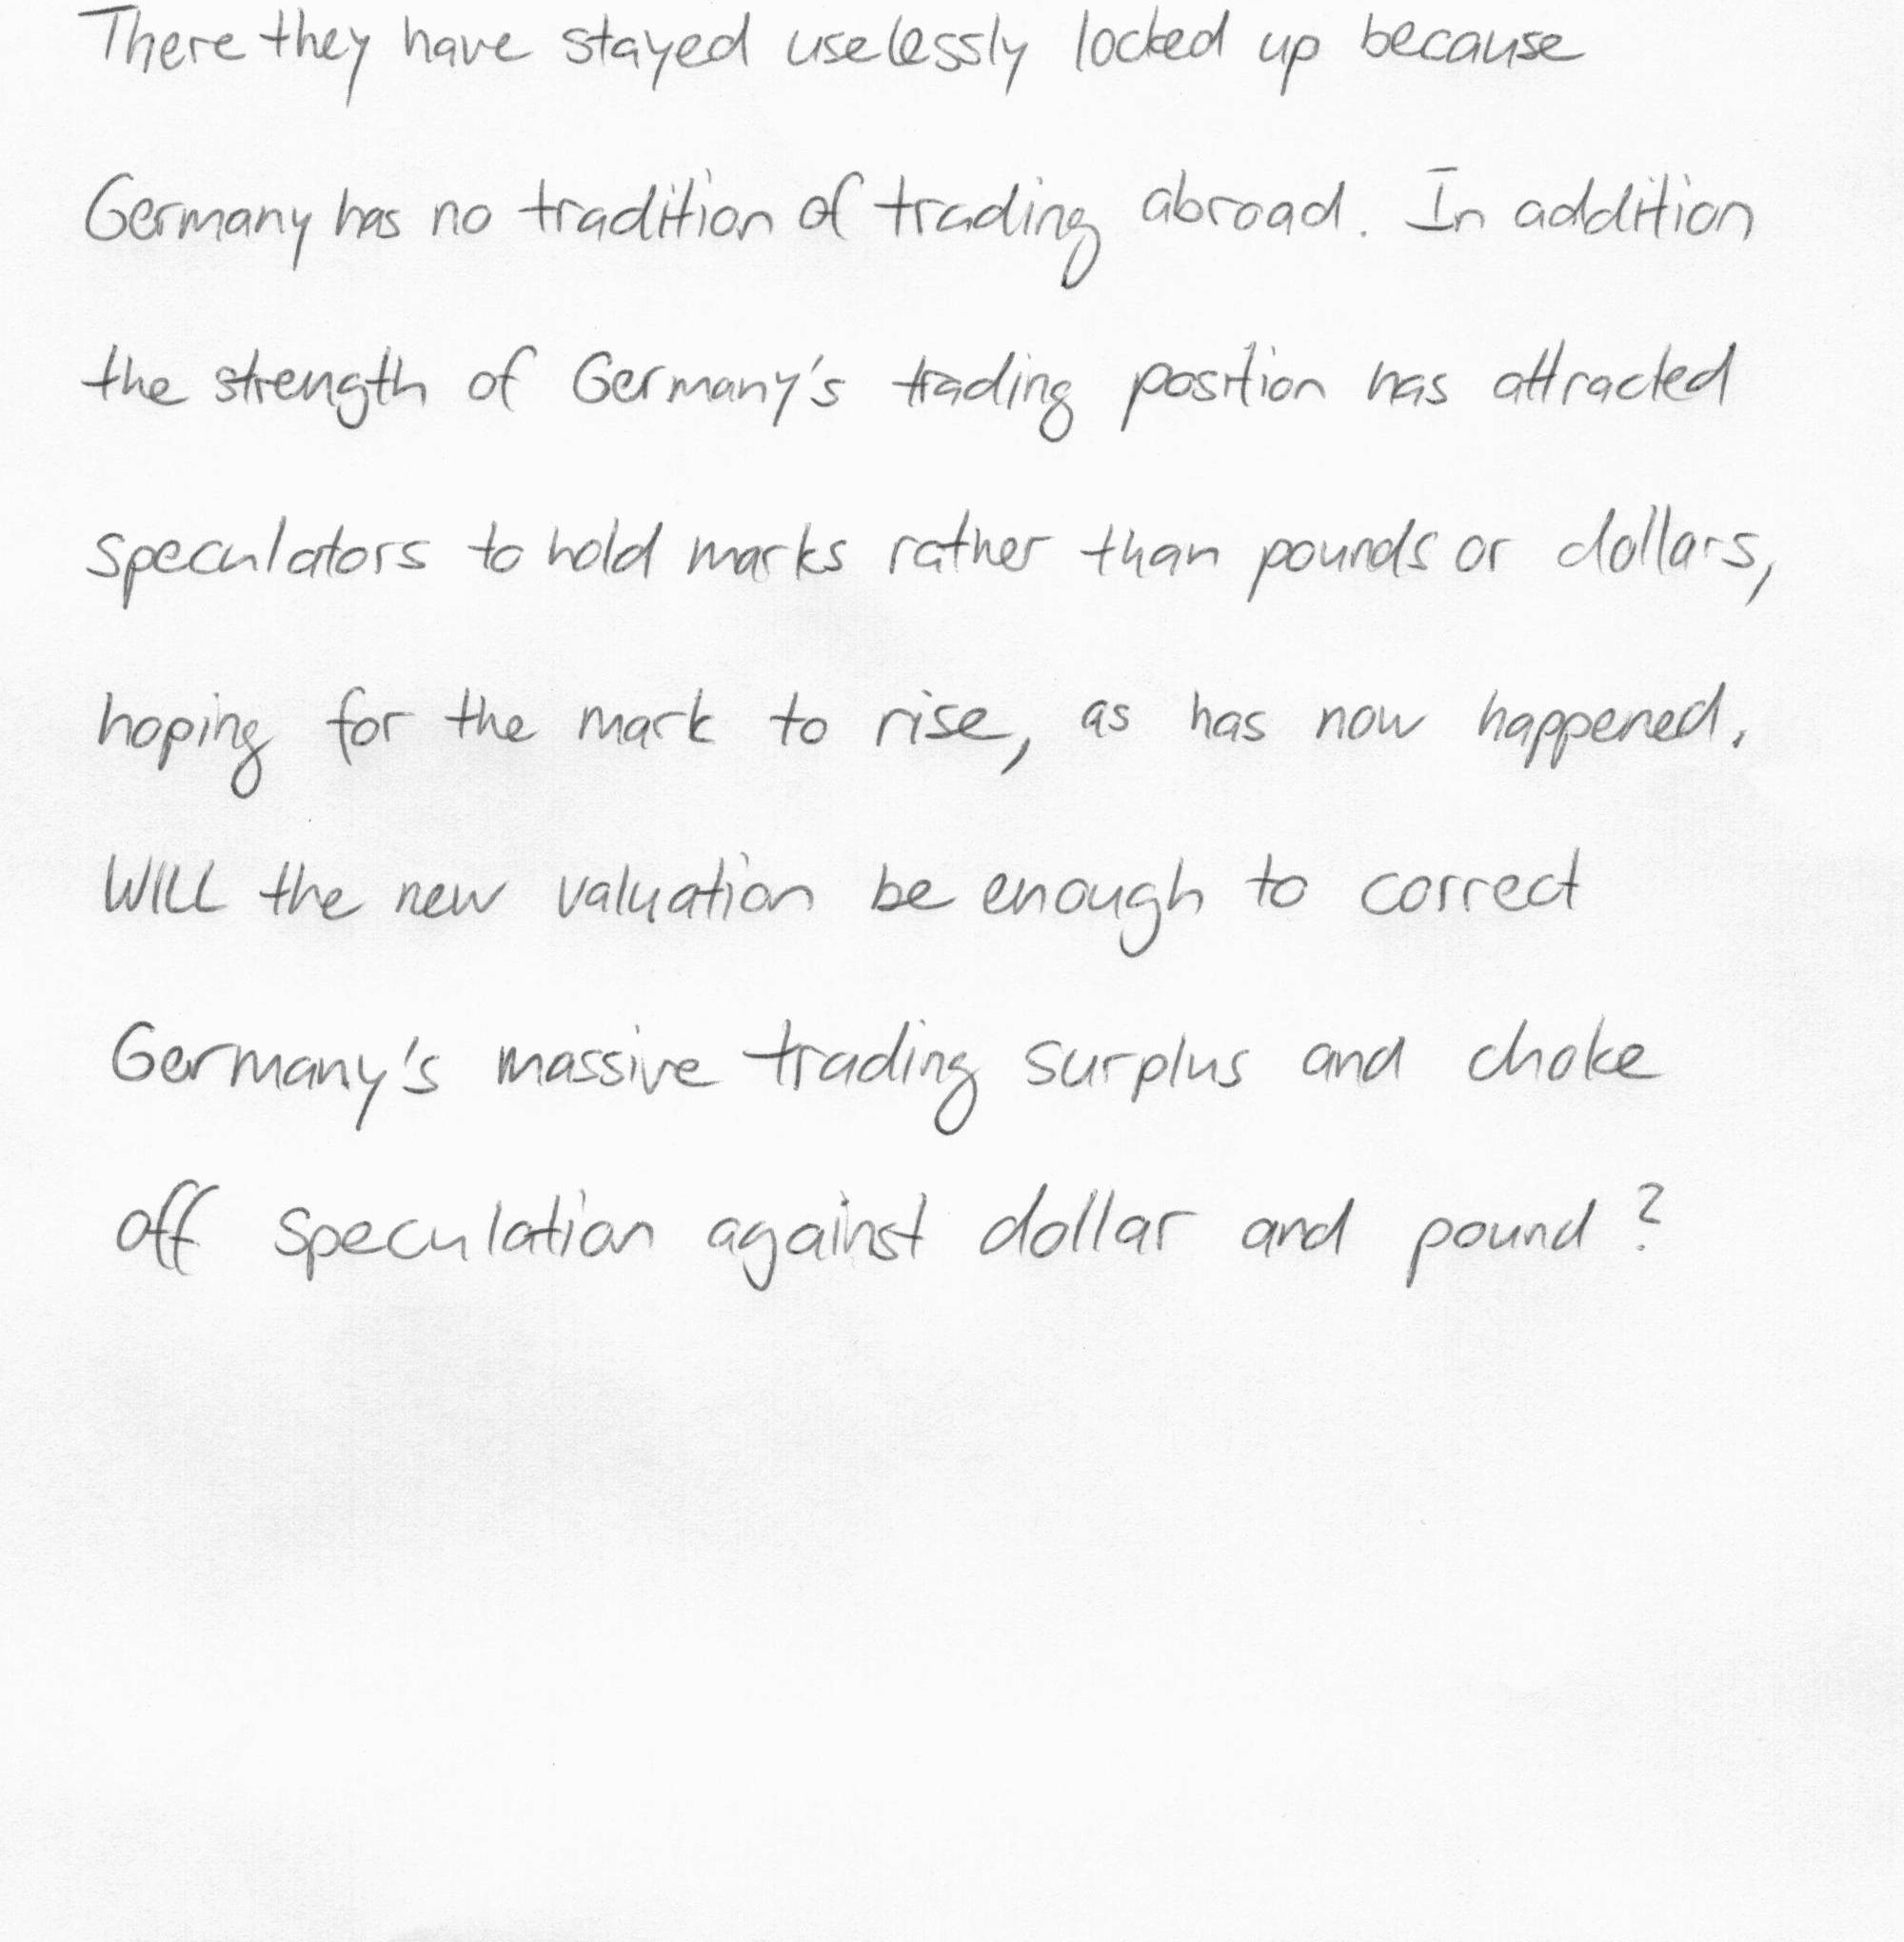 There they have stayed uselessly locked up because
Germany has no tradition of trading abroad. In addition
the strength of Germany's trading position has attracted
speculators to hold marks rather than pounds or dollars,
hoping for the mark to rise, as has now happened.
WILL the new valuation be enough to correct
Germany's massive trading surplus and choke
off speculation against dollar and pound?